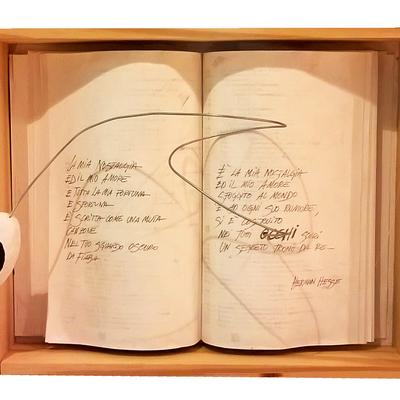 LA MIA NOSTALGIA
ED IL MIO AMORE
E TUTTA LA MIA FORTUNA
E SFORTUNA
E' SCRITTA COME UNA MUTA
CANZONE
NEL TUO SGUARDO OSCURO
DA FIABA
È LA MIA NOSTALGIA
ED IL MIO AMORE
SFUGGITO AL MONDO
E AD OGNI SUO RUMORE,
SI È COSTRUITO
NEI TUOI OCCHI SCURI
UN SEGRETO TRONO DA RE
HERMAN HESSE